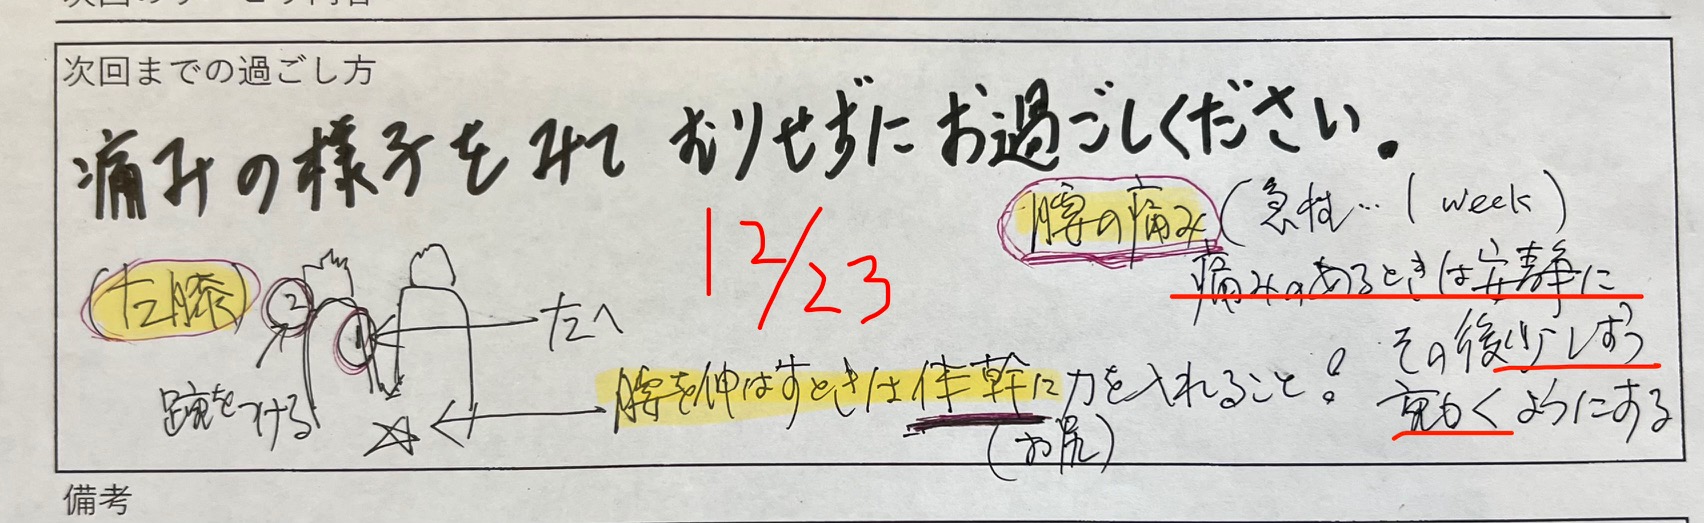 次回までの過ごし方
痛みの様子をみて むりせずにお過ごしください。
12/23
腰の痛み (急性… 1 week)
痛みのあるときは安静に
その後少しずつ
動くようにする
左膝
2
1
左へ
腕をつける
腰を伸ばすときは体幹に力を入れること!
(お尻)
備考